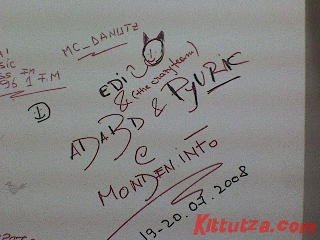 MC_DANUTZ
SS FM
96.1 F.M
EDI
& (the crazy team)
I
ADABD & PyURIK
@
MONDEN INFO
19-20.07.2008
Kittutza.com